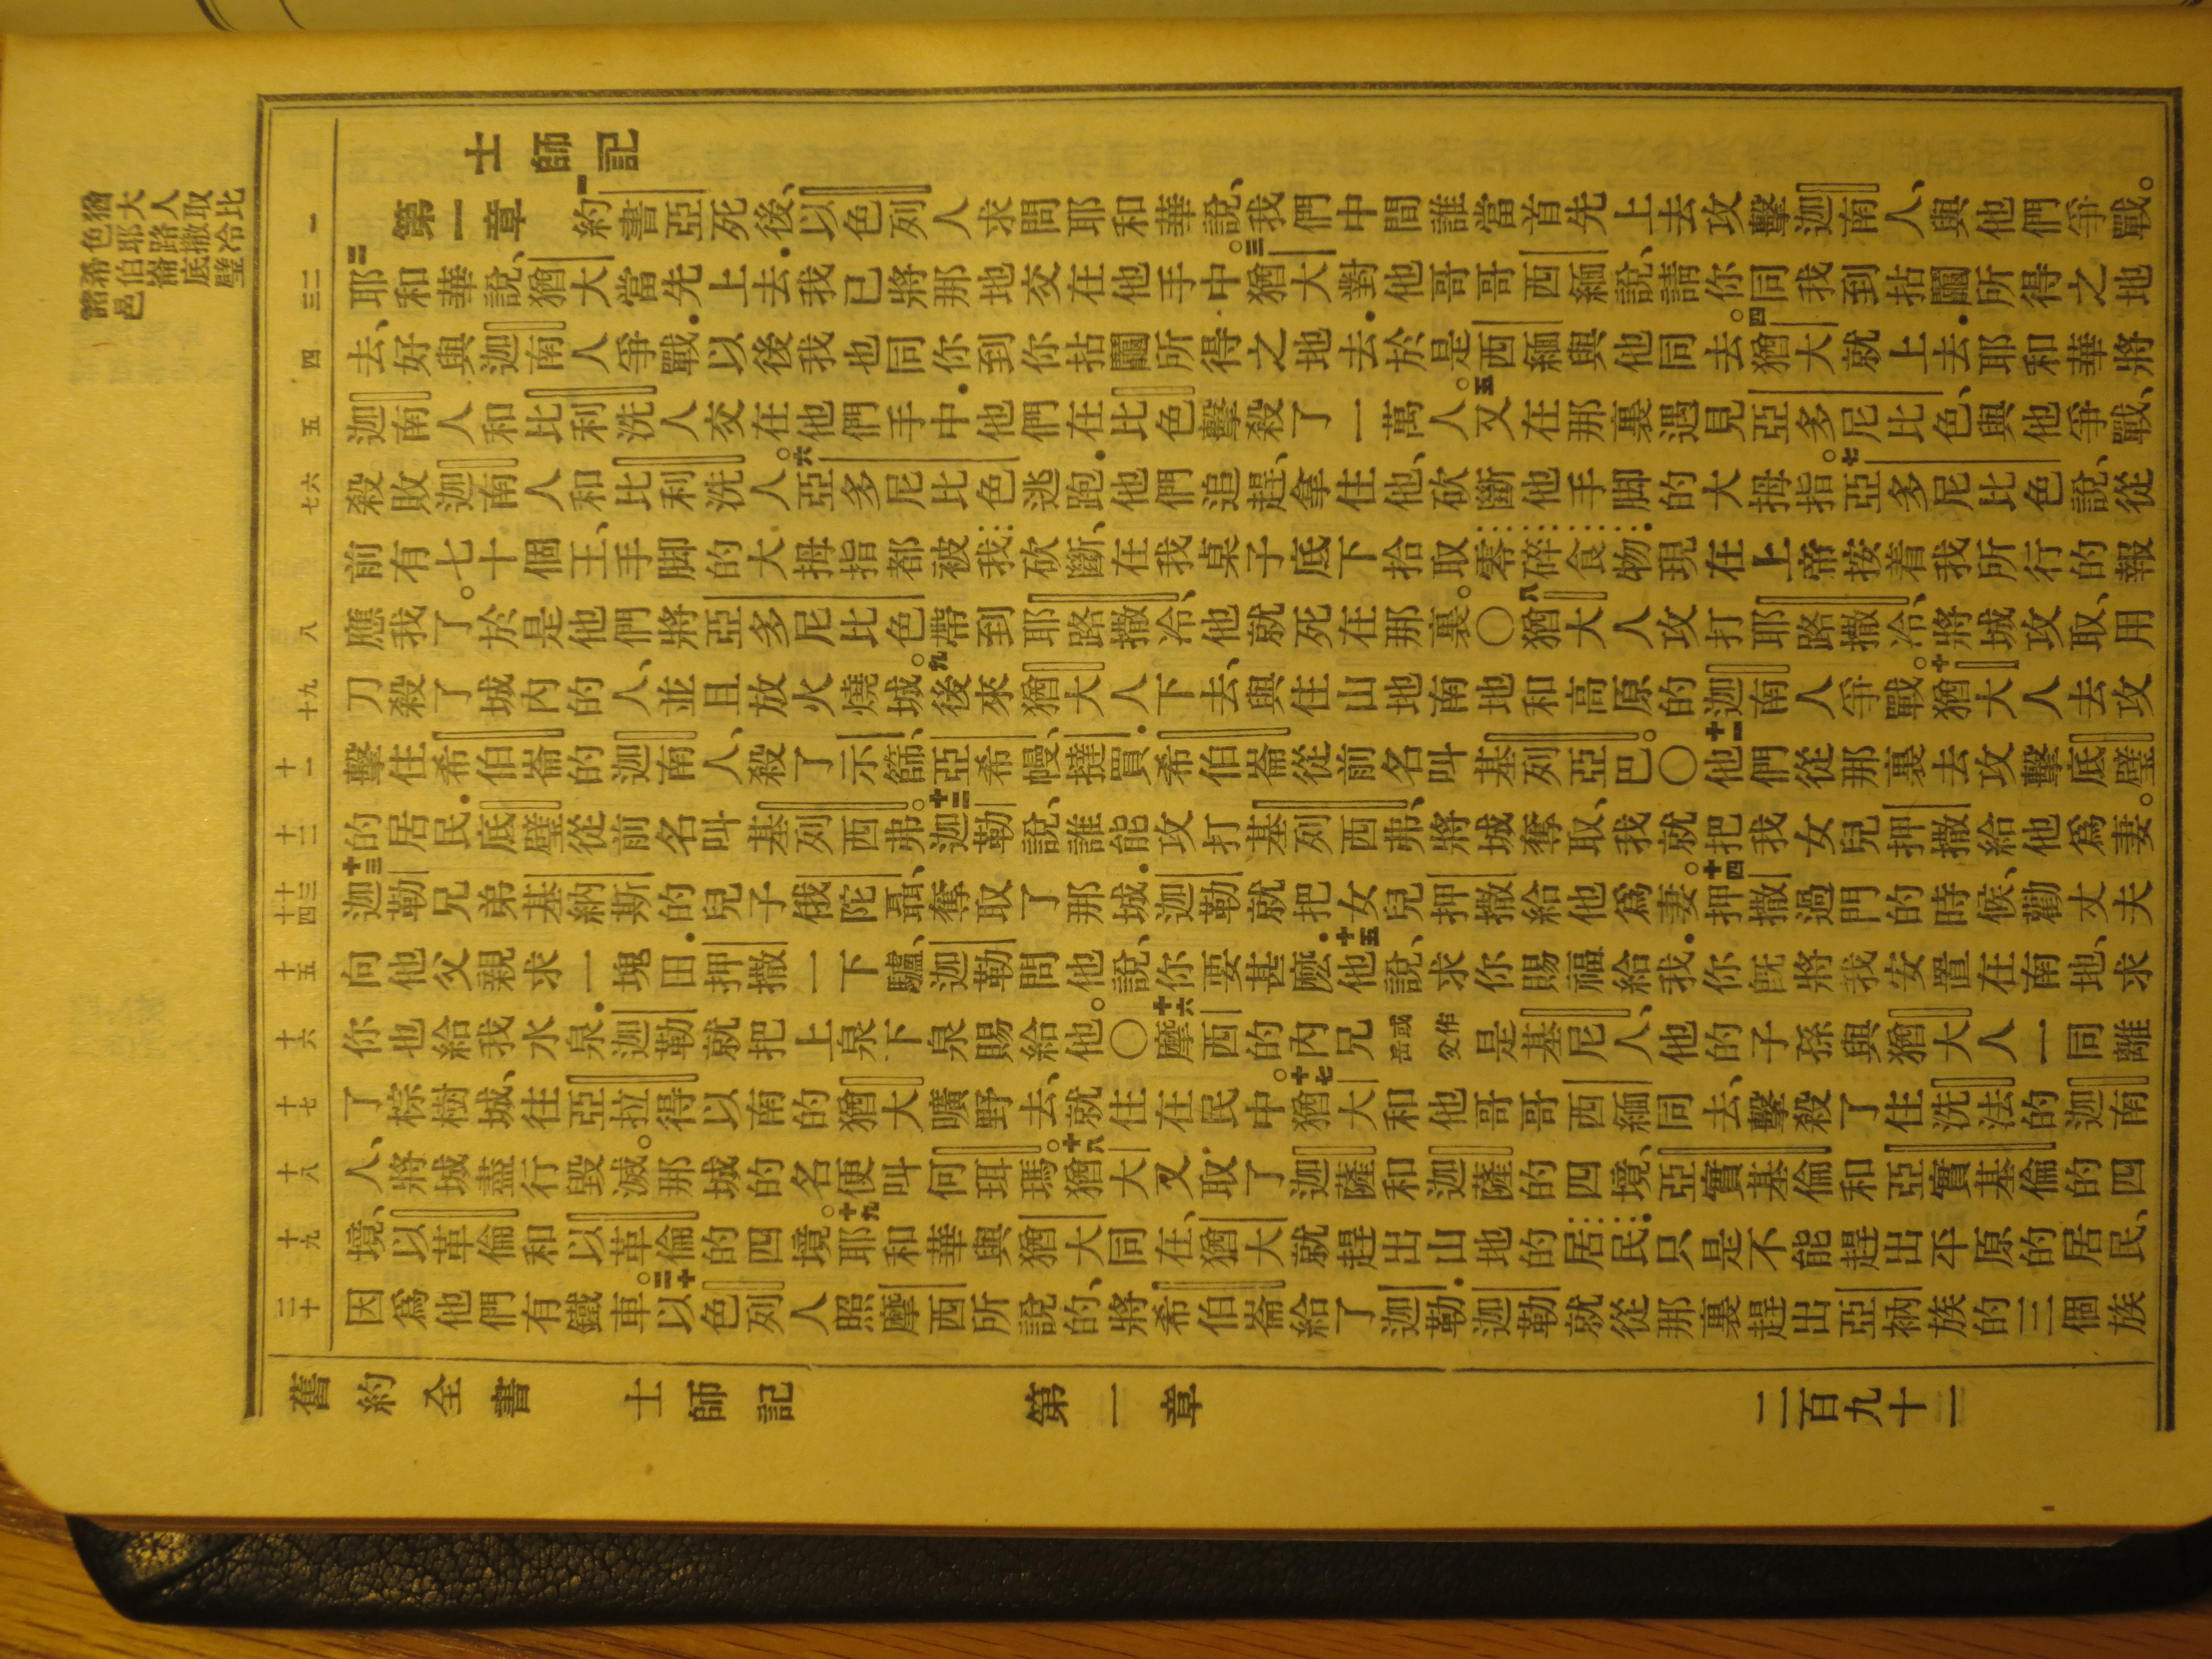 猶大人取比
色耶路撒冷
希伯崙底璧
諸邑
士師記
一
第一章 一約書亞死後、以色列人求問耶和華說、我們中間誰當首先上去攻擊迦南人、與他們爭戰。
二三
二耶和華說、猶大當先上去．我已將那地交在他手中。三猶大對他哥哥西緬說、請你同我到拈鬮所得之地
四
去、好與迦南人爭戰．以後我也同你到你拈鬮所得之地去．於是西緬與他同去。四猶大就上去．耶和華將
五
迦南人和比利洗人交在他們手中．他們在比色擊殺了一萬人。五又在那裏遇見亞多尼比色、與他爭戰、
六七
殺敗迦南人和比利洗人。六亞多尼比色逃跑．他們追趕、拿住他、砍斷他手脚的大拇指。七亞多尼比色說、從
前有七十個王、手脚的大拇指都被我砍斷、在我桌子底下拾取零碎食物．現在上帝按着我所行的報
八
應我了。於是他們將亞多尼比色帶到耶路撒冷、他就死在那裏。〇八猶大人攻打耶路撒冷、將城攻取、用
九十
刀殺了城內的人、並且放火燒城。九後來猶大人下去、與住山地南地和高原的迦南人爭戰。十猶大人去攻
十一
擊住希伯崙的迦南人、殺了示篩、亞希幔、撻買．希伯崙從前名叫基列亞巴。〇十一他們從那裏去攻擊底璧
十二
的居民．底璧從前名叫基列西弗。十二迦勒說、誰能攻打基列西弗、將城奪取、我就把我女兒押撒給他爲妻。
十三十四
十三迦勒兄弟基納斯的兒子俄陀聶、奪取了那城．迦勒就把女兒押撒給他爲妻。十四押撒過門的時候、勸丈夫
十五
向他父親求一塊田．押撒一下驢、迦勒問他說、你要甚麽．十五他說、求你賜福給我．你旣將我安置在南地、求
十六
你也給我水泉．迦勒就把上泉下泉賜給他。〇十六摩西的內兄或作岳父是基尼人、他的子孫與猶大人一同離
十七
了棕樹城、往亞拉得以南的猶大曠野去、就住在民中。十七猶大和他哥哥西緬同去、擊殺了住洗法的迦南
十八
人、將城盡行毀滅。那城的名便叫何珥瑪。十八猶大又取了迦薩和迦薩的四境、亞實基倫和亞實基倫的四
十九
境、以革倫和以革倫的四境。十九耶和華與猶大同在、猶大就趕出山地的居民．只是不能趕出平原的居民、
二十
因爲他們有鐵車。二十以色列人照摩西所說的、將希伯崙給了迦勒．迦勒就從那裏趕出亞衲族的三個族
舊約全書 士師記 第一章 二百九十一